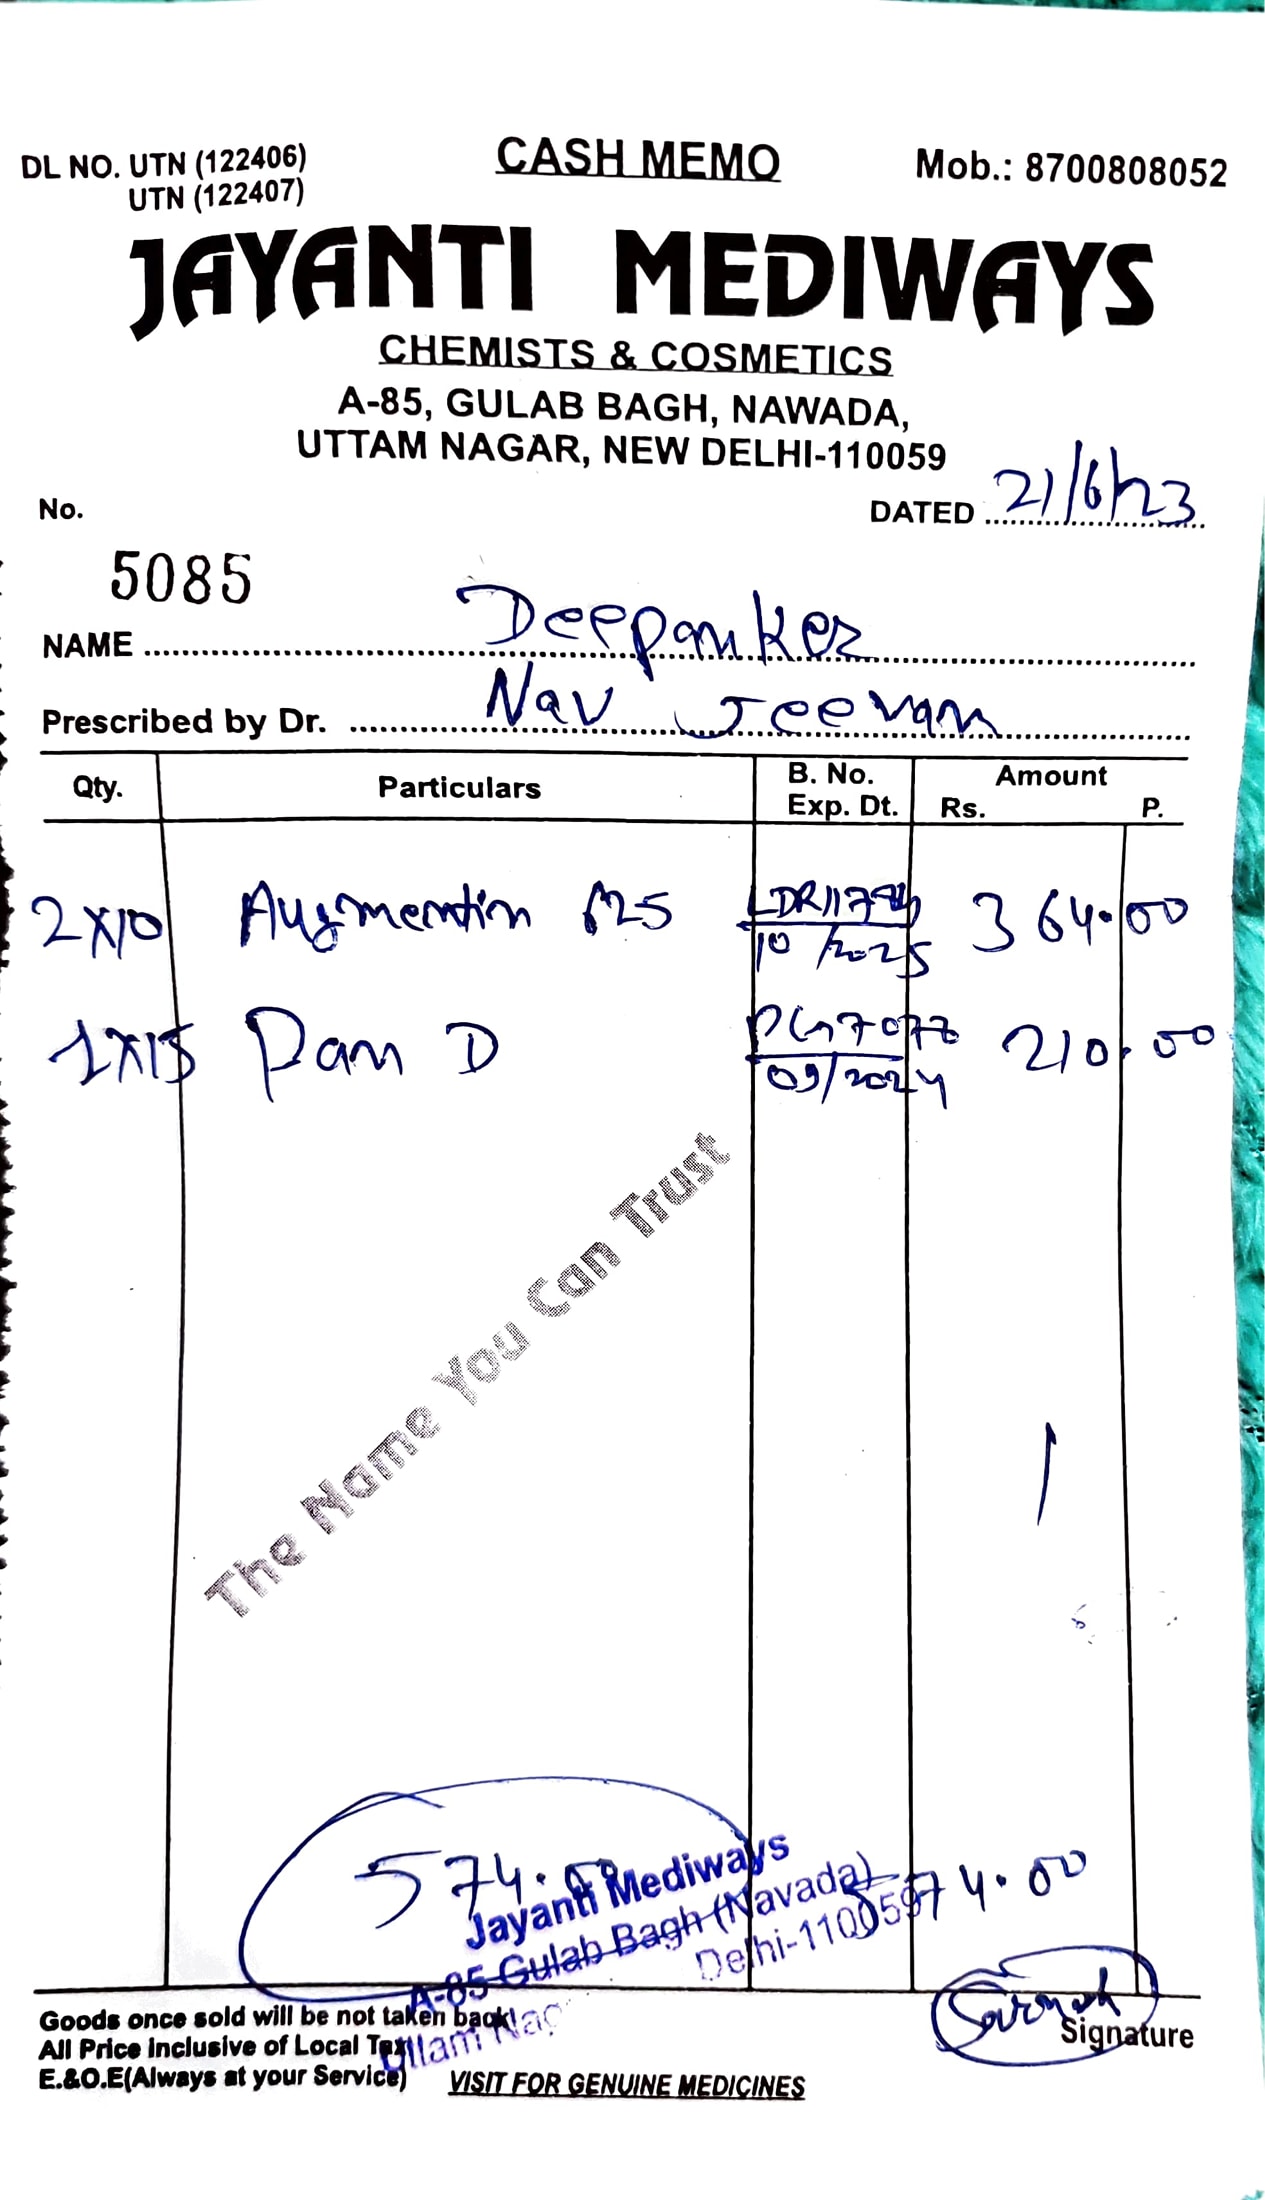 DL NO. UTN (122406)
UTN (122407)
CASH MEMO
Mob.: 8700808052
JAYANTI MEDIWAYS
CHEMISTS & COSMETICS
A-85, GULAB BAGH, NAWADA,
UTTAM NAGAR, NEW DELHI-110059
No.
DATED 21/6/23
5085
NAME Deepanker
Prescribed by Dr. Nav Jeevan
Qty. Particulars B. No. Exp. Dt. Amount Rs. P.
2x10 Augmentin 625 10/2025 364.00
1x15 Pan D 09/2024 210.00
The Name You Can Trust
574.00
574.00
Jayanti Mediways
A-85 Gulab Bagh (Navada)
Uttam Nag Delhi-110059
Goods once sold will be not taken back
All Price Inclusive of Local Tax
E.&O.E(Always at your Service)
VISIT FOR GENUINE MEDICINES
Signature